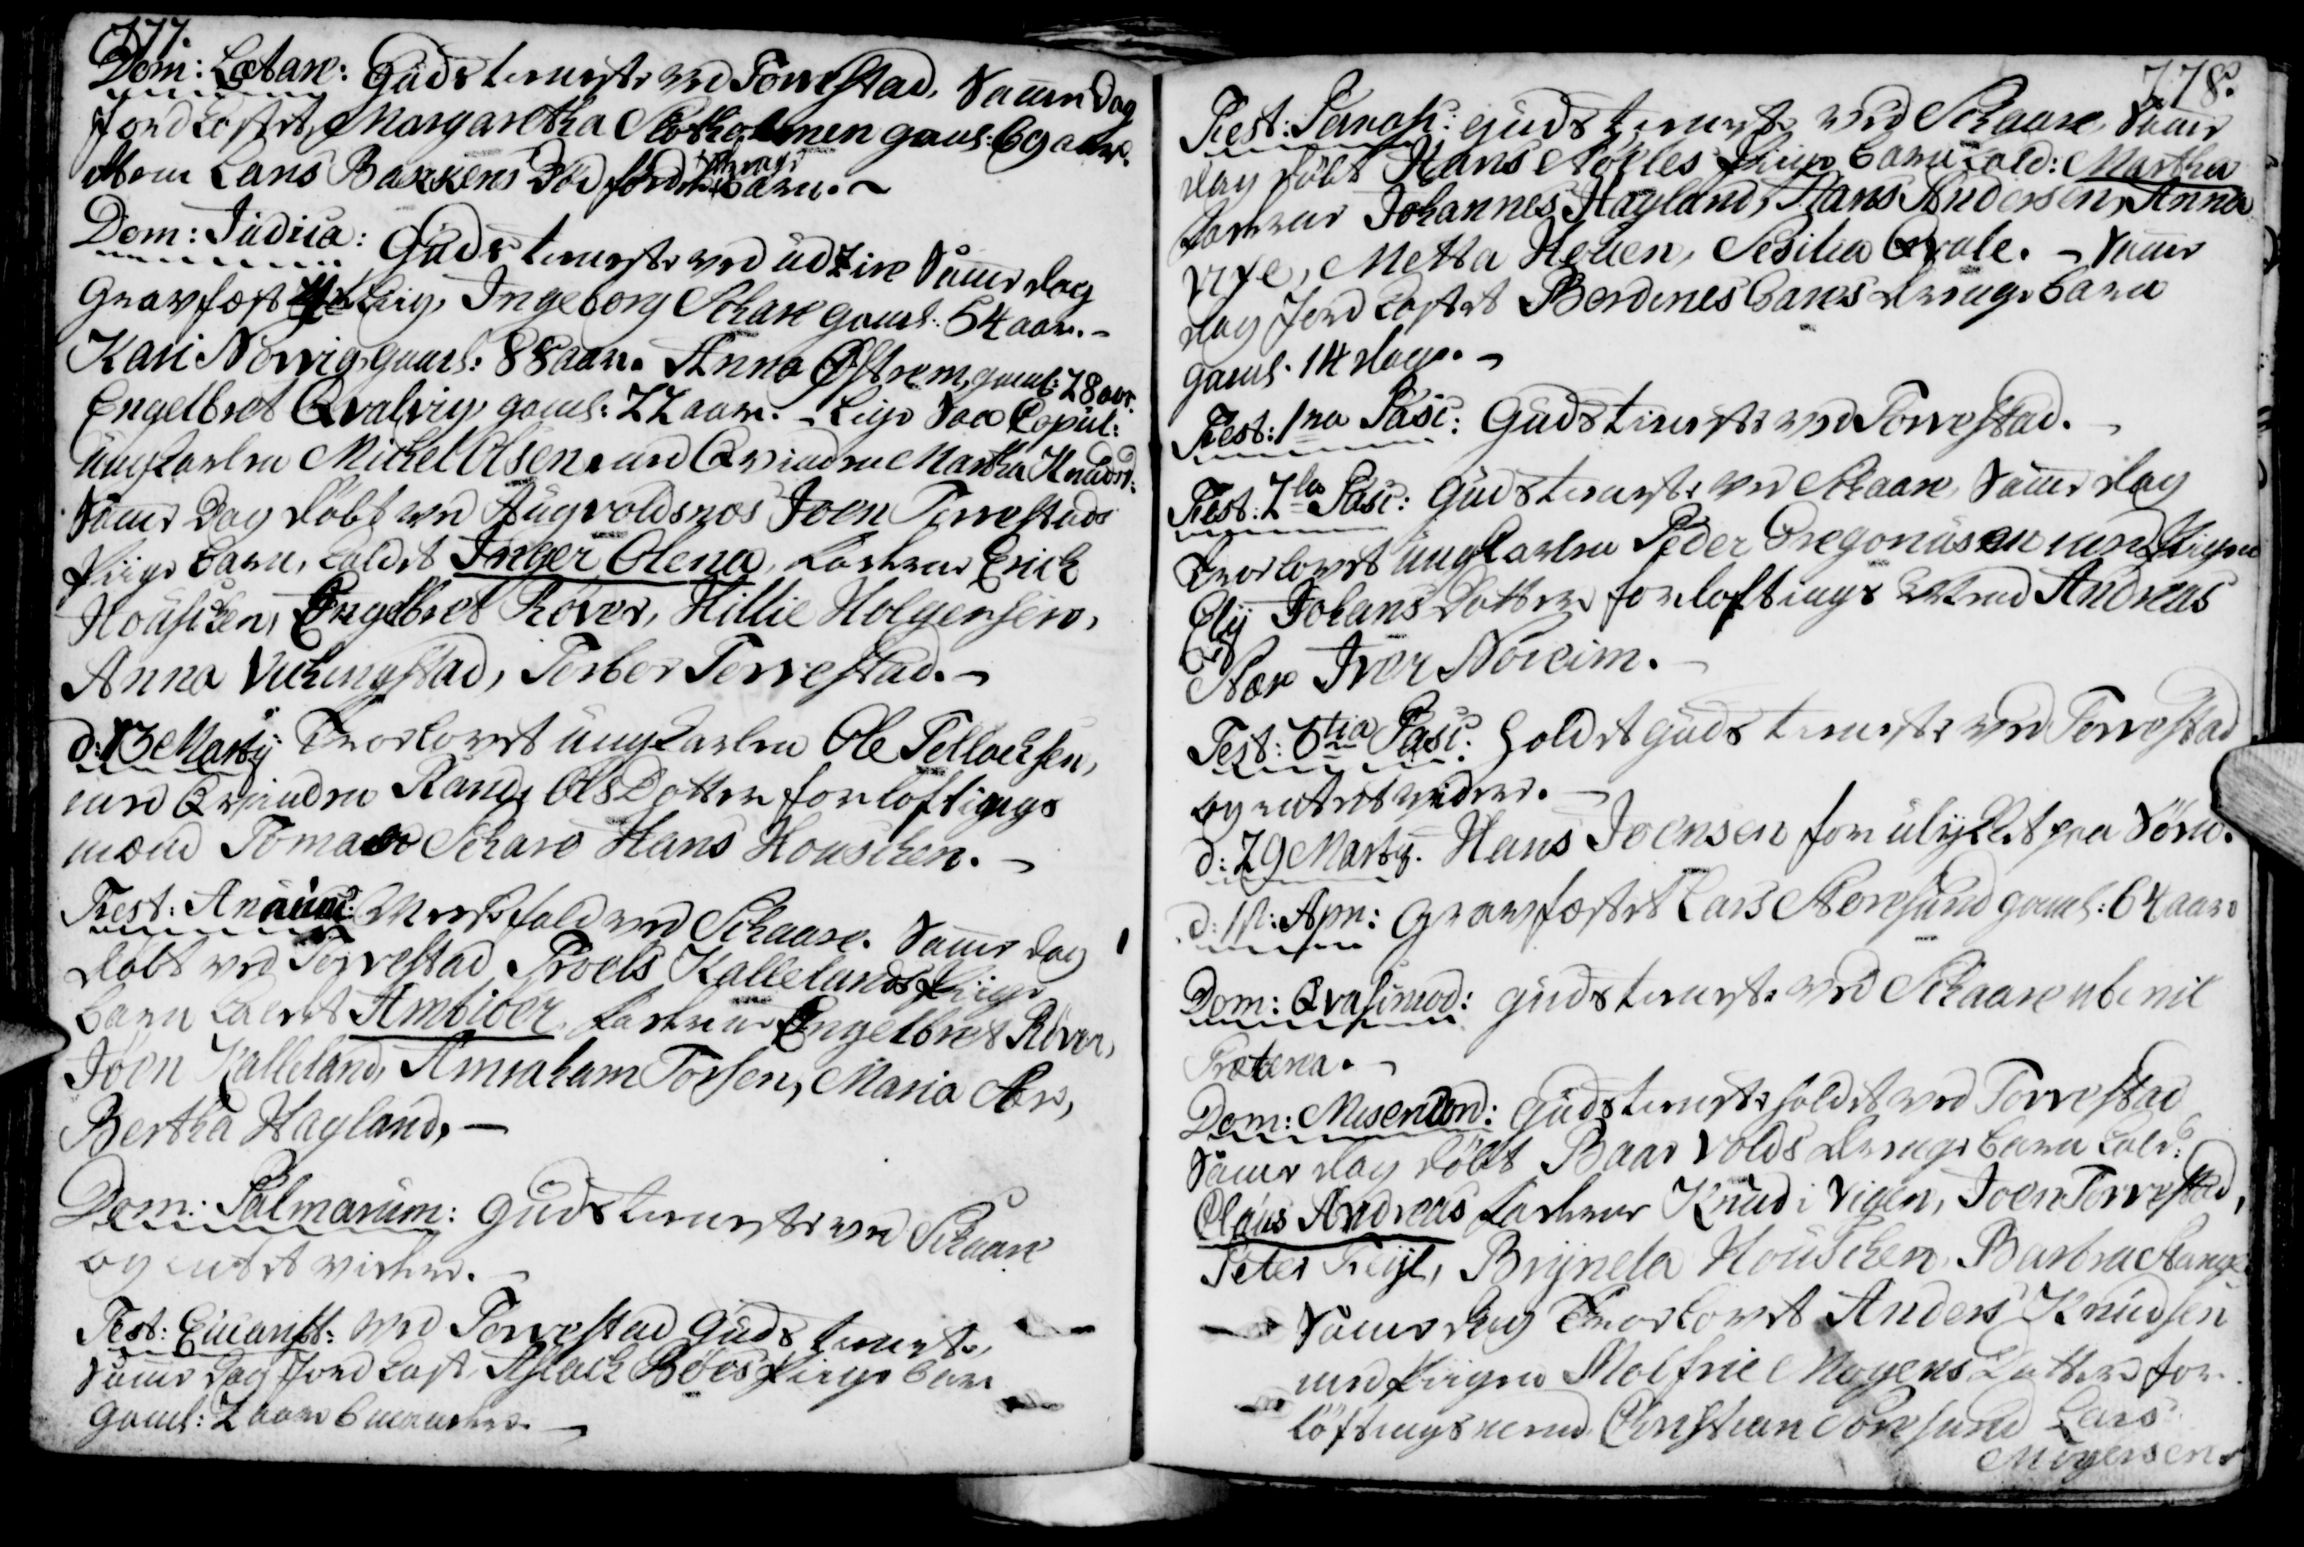 177.
Dom: Lætare: Gudstieniste ved Torvestad, Samme Dag
Jordkastet, Margaretha Stokholmen gaml: 69 aar.
Item Lars Bakkens Död föd drenge Barn. ~
Dom: Judica: Gudstieniste ved udzire Samme dag
Gravfæst Liig, Ingeborg Schare gaml: 54 aar. -
Kari Norvig, gaml: 88 aar. Anna Östrem, gaml: 28 aar.
Engelbret Qvalvig, gaml: 22 aar. - Lige saa Copul:
ungkarlen Mickel Olsen med Qvinden Martha Knudsd:
Samme Dag döbt ved Augvoldsnes Joen Torvestads
Pige barn, kaldet Inger Olena, Fadderne Erich
Houschen, Engelbret Röver, Hillie Holgersen,
Anna Vichingstad, Torber Torvestad. -
d: 13 Martij Trolovet ungkarlen Ole Tollochsen,
med Qvinden Rande Olsdotter forlöftings
mænd Tomas Schare Hans Houschen. -
Fest: Anaunc: Messefald ved Schaare. Samme dag
döbt ved Torvestad Troels Kallelands Pige
barn kaldet Ambiöer, Fadderne Engelbret Röver,
Joen Kalleland, Amraham Torsen, Maria
Bertha Hagland, -
Dom: Palmarum: gudstieniste ved Schaare
og intet videre. -
Fest: Eucarist: ved Torvestad gudstieniste,
Samme Dag Jordkast, Aslach Böes Pige barn
gaml: 2 aar 6 maaneder. -
178.
Fest: Parasc: gudstieniste ved Schaare, Samme
dag döbt Hans Nötles Pige barn kald: Martha
Fadderne Johannes Hagland, Hans Andersen, Anna
Vixe, Metta Heuen, Sesilia Qvale. - Samme
dag Jordkastet Berdines barns drenge barn
gaml. 14 dage. -
Fest: 1ma Pasc: Gudstieniste ved Torvestad. -
Fest: 2da Pasc: gudstieniste ved Schaare, Samme dag
Trolovet ungkarlen Peder Gregoriusen med Pigen
Elij Johansdotter forloftings Mænd Andreas
Nære Iver Noreim. -
Fest: 3tia Pasc: holdet gudstieniste ved Torvestad
og intet videre. -
d: 29 Martij. Hans Joensen forulykket paa Söen.
d: 1st: Apr: gravfæstet Lars Noresund gaml: 64 aar
Dom: Qvasimod: gudstieniste ved Schaare ubi nil
Præterea. -
Dom: Misericord: gudstieniste holdet ved Torvestad
Samme dag döbt Baar Volds drenge barn kald:
Olaus Andreas Fadderne Knud i Vigen, Joen Torvestad,
Peter, Brijnela Houschen, Barbra Stange
Samme dag Trolovet Anders Knudsen
med Pigen Molfrie Mogensdotter for
löftings mænd Christian Noresund Lars
Mogensen